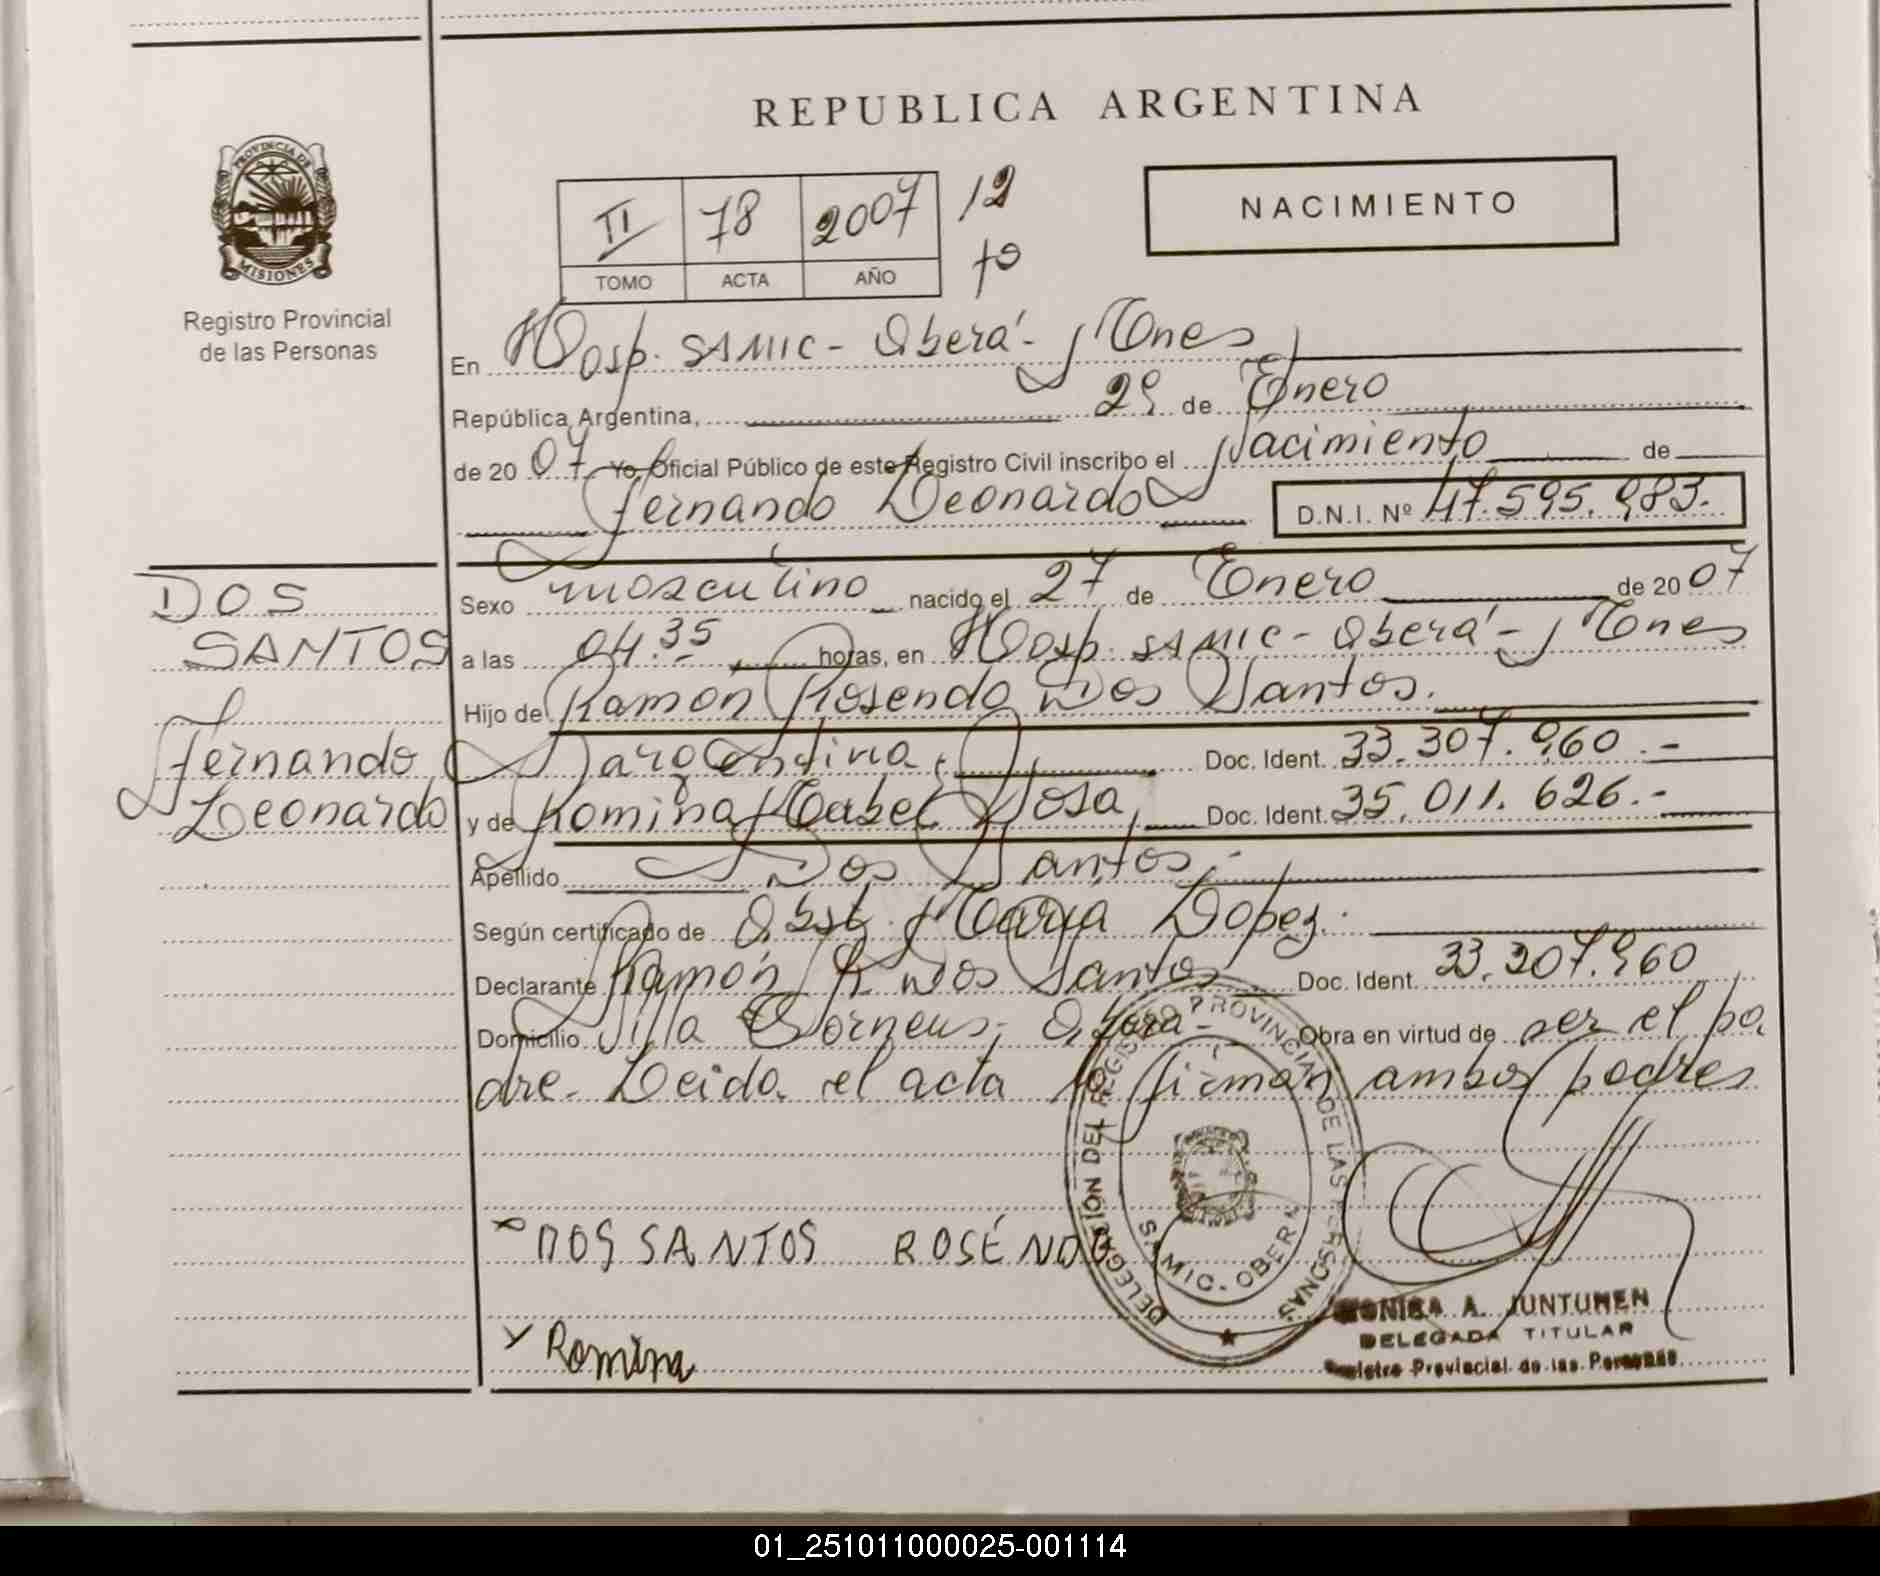 REPUBLICA ARGENTINA
PROVINCIA DE
MISIONES
Registro Provincial
de las Personas
II 78 2007 12
TOMO ACTA AÑO
NACIMIENTO
En Hosp. SAMIC - Oberá - Mnes
República Argentina, 29 de Enero
de 20 07 Yo, Oficial Público de este Registro Civil inscribo el Nacimiento de
Fernando Leonardo D.N.I. Nº 47.595.983.
DOS
SANTOS
Fernando
Leonardo
Sexo masculino nacido el 27 de Enero de 20 07
a las 04.35 horas, en Hosp. SAMIC - Oberá - Mnes
Hijo de Ramon Rosendo Dos Santos.
argentina, Doc. Ident. 33.307.960.-
y de Romina Mabel Sosa, Doc. Ident. 35.011.626.-
Apellido Dos Santos.-
Según certificado de Obst. Maria Lopez.
Declarante Ramón R. Dos Santos Doc. Ident. 33.307.960
Domicilio Villa Oberá - Obra en virtud de ser el pa
dre. Leida el acta la firman ambos padres
DOS SANTOS ROSÉNDO
Romina
DELEGACIÓN DEL REGISTRO PROVINCIAL DE LAS PERSONAS
SAMIC - OBERA
MONICA A. JUNTUNEN
DELEGADA TITULAR
Registro Provincial de las Personas
01_251011000025-001114